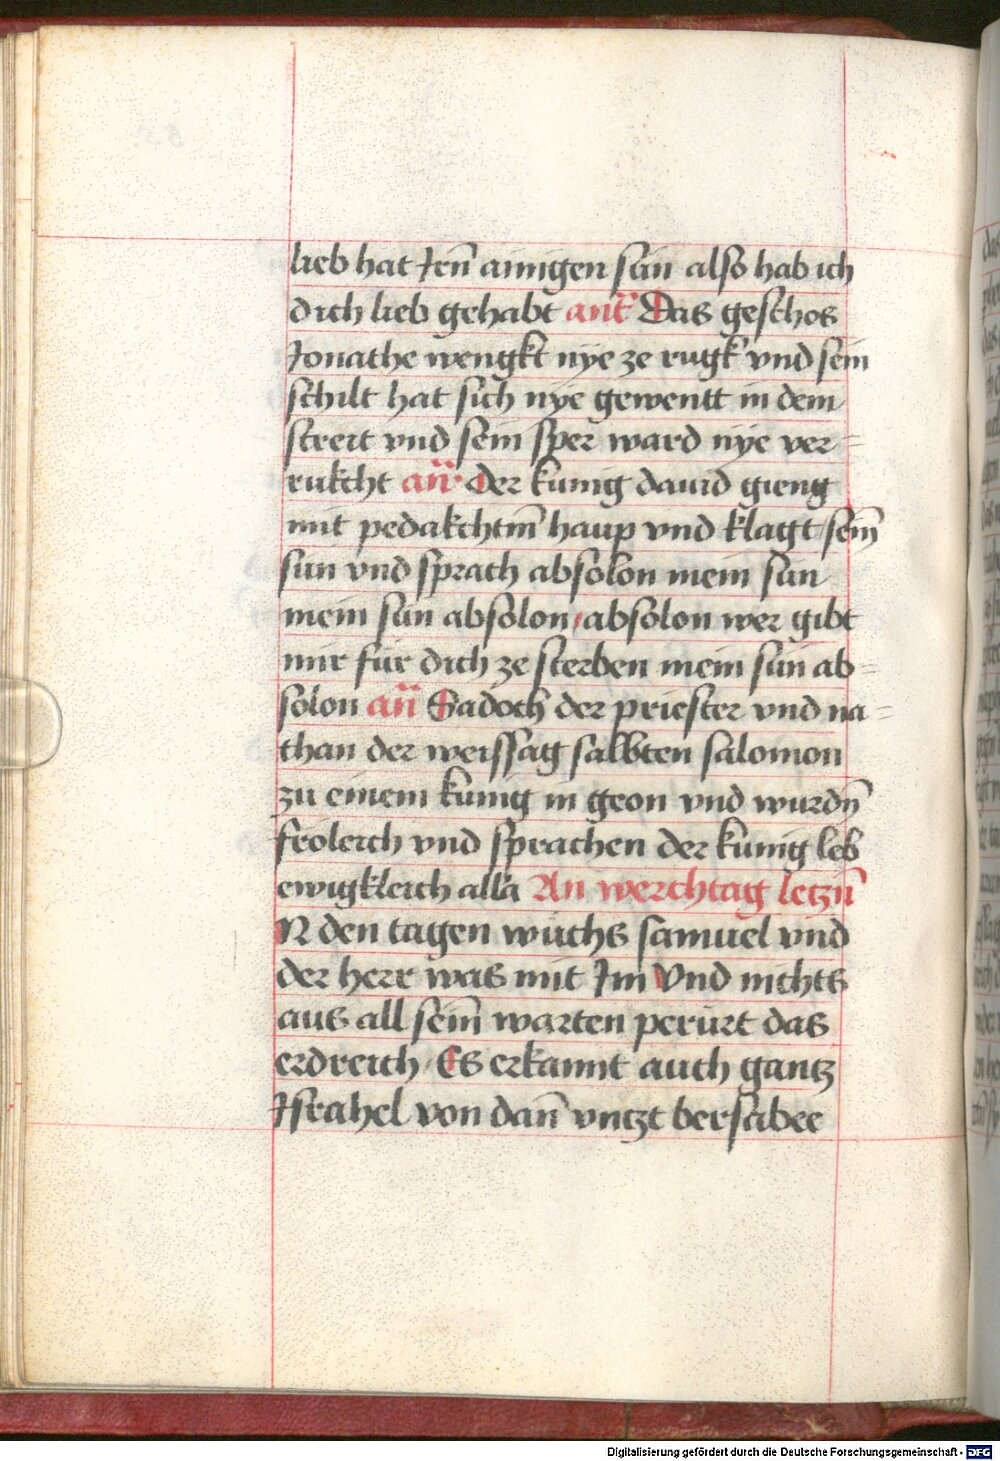 lieb hat Jren̄ ainigen sun also hab ich
dich lieb gehabt ant̄ Das geschos
Jonathe wengkt nye ze rugk vnd sein
schilt hat sich nye gewentt in dem
streit vnd sein sper ward nye ver=
rukcht an̄ der kunig dauid gieng
mit pedakchtm̄ haup vnd klagt sein̄
sun vnd sprach absolon mein sun
mein sun absolon, absolon wer gibt
mir fur dich ze sterben mein sun ab=
solon an̄ Sadoch der priester vnd na=
than der weissag salbten salomon
zu einem kunig in geon vnd wurdn̄
frolich vnd sprachen der kunig leb
ewigkleich alla An werchtag letzn̄
N den tagen wuchs samuel vnd
der herr was mit Jm Vnd nichts
aus all sein̄ warten perurt das
erdreich. Es erkannt auch gantz
Jsrahel von dan̄ vntzt bersabee
Digitalisierung gefördert durch die Deutsche Forschungsgemeinschaft - DFG